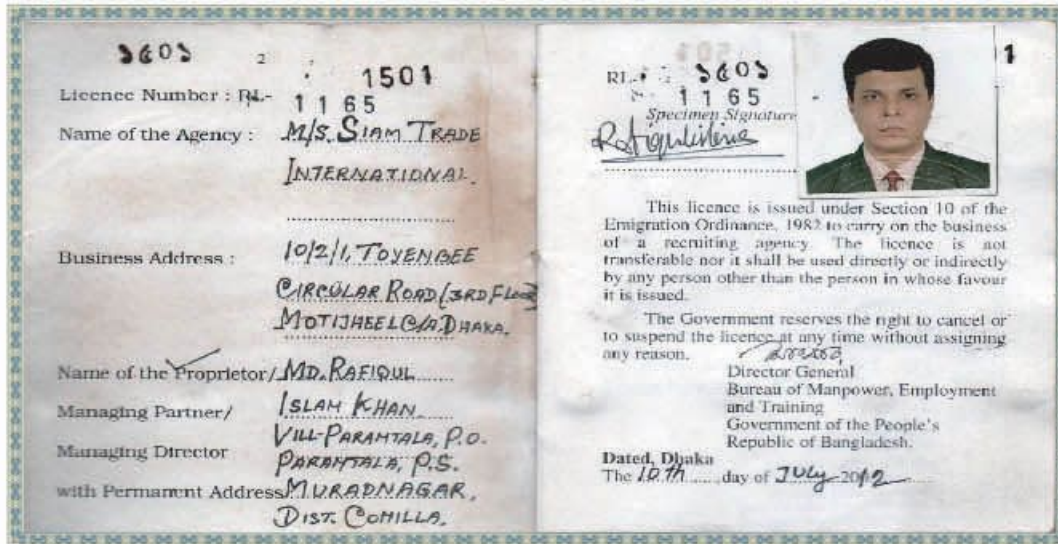 ১৫০১
2
1501
Licence Number : RL-
1 1 65
Name of the Agency : M/S. SIAM TRADE
INTERNATIONAL.
Business Address : 10/2/1, TOYENBEE
CIRCULAR ROAD (3RD FLOOR)
MOTIJHEEL C/A. DHAKA.
Name of the Proprietor/ MD. RAFIQUL
Managing Partner/ ISLAM KHAN
Managing Director VILL-PARAMTALA, P.O.
PARAMTALA, P.S.
with Permanent Address MURADNAGAR,
DIST. COMILLA.
1
RL- ১৫০১
1 1 65
Specimen Signature
This licence is issued under Section 10 of the
Emigration Ordinance, 1982 to carry on the business
of a recruiting agency. The licence is not
transferable nor it shall be used directly or indirectly
by any person other than the person in whose favour
it is issued.
The Government reserves the right to cancel or
to suspend the licence at any time without assigning
any reason.
Director General
Bureau of Manpower, Employment
and Training
Government of the People's
Republic of Bangladesh.
Dated, Dhaka
The 10th day of July 2012